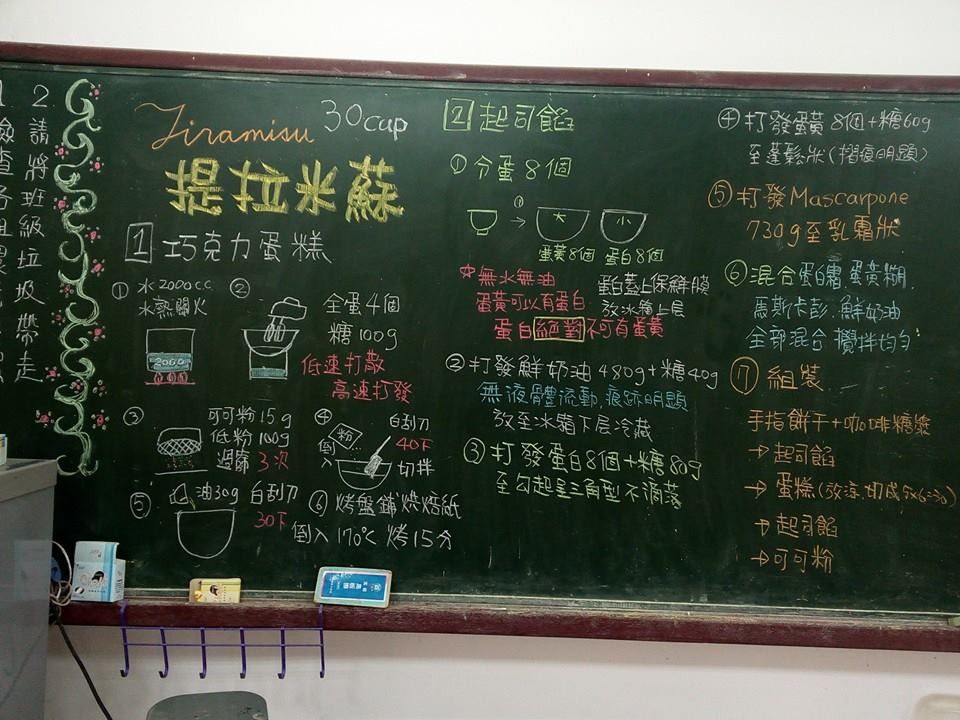 2
請將班級垃圾帶走
Tiramisu 30cup
提拉米蘇
1 巧克力蛋糕
① 水2000c.c.
水熱關火
2000
②
全蛋4個
糖100g
低速打散
高速打發
③ 可可粉15g
低粉100g
過篩3次
④ 白刮刀
40下
切拌
粉
倒入
⑤ 油30g 白刮刀
30下
⑥ 烤盤鋪烘焙紙
倒入170℃ 烤15分
2 起司餡
① 分蛋8個
① 大 小
蛋黃8個 蛋白8個
無水無油
蛋黃可以有蛋白
蛋白絕對不可有蛋黃
蛋白蓋上保鮮膜
放冰箱上层
② 打發鮮奶油480g+糖40g
無液體流動,痕跡明顯
放至冰箱下层冷藏
③ 打發蛋白8個+糖80g
至勾起呈三角型不滴落
④ 打發蛋黃8個+糖60g
至蓬鬆狀(摺痕明顯)
⑤ 打發Mascarpone
730g至乳霜狀
⑥ 混合蛋白霜.蛋黃糊.
馬斯卡彭.鮮奶油
全部混合攪拌均勻
⑦ 組裝
手指餅干+咖啡糖漿
→起司餡
→蛋糕(放涼.切成5x6=30)
→起司餡
→可可粉